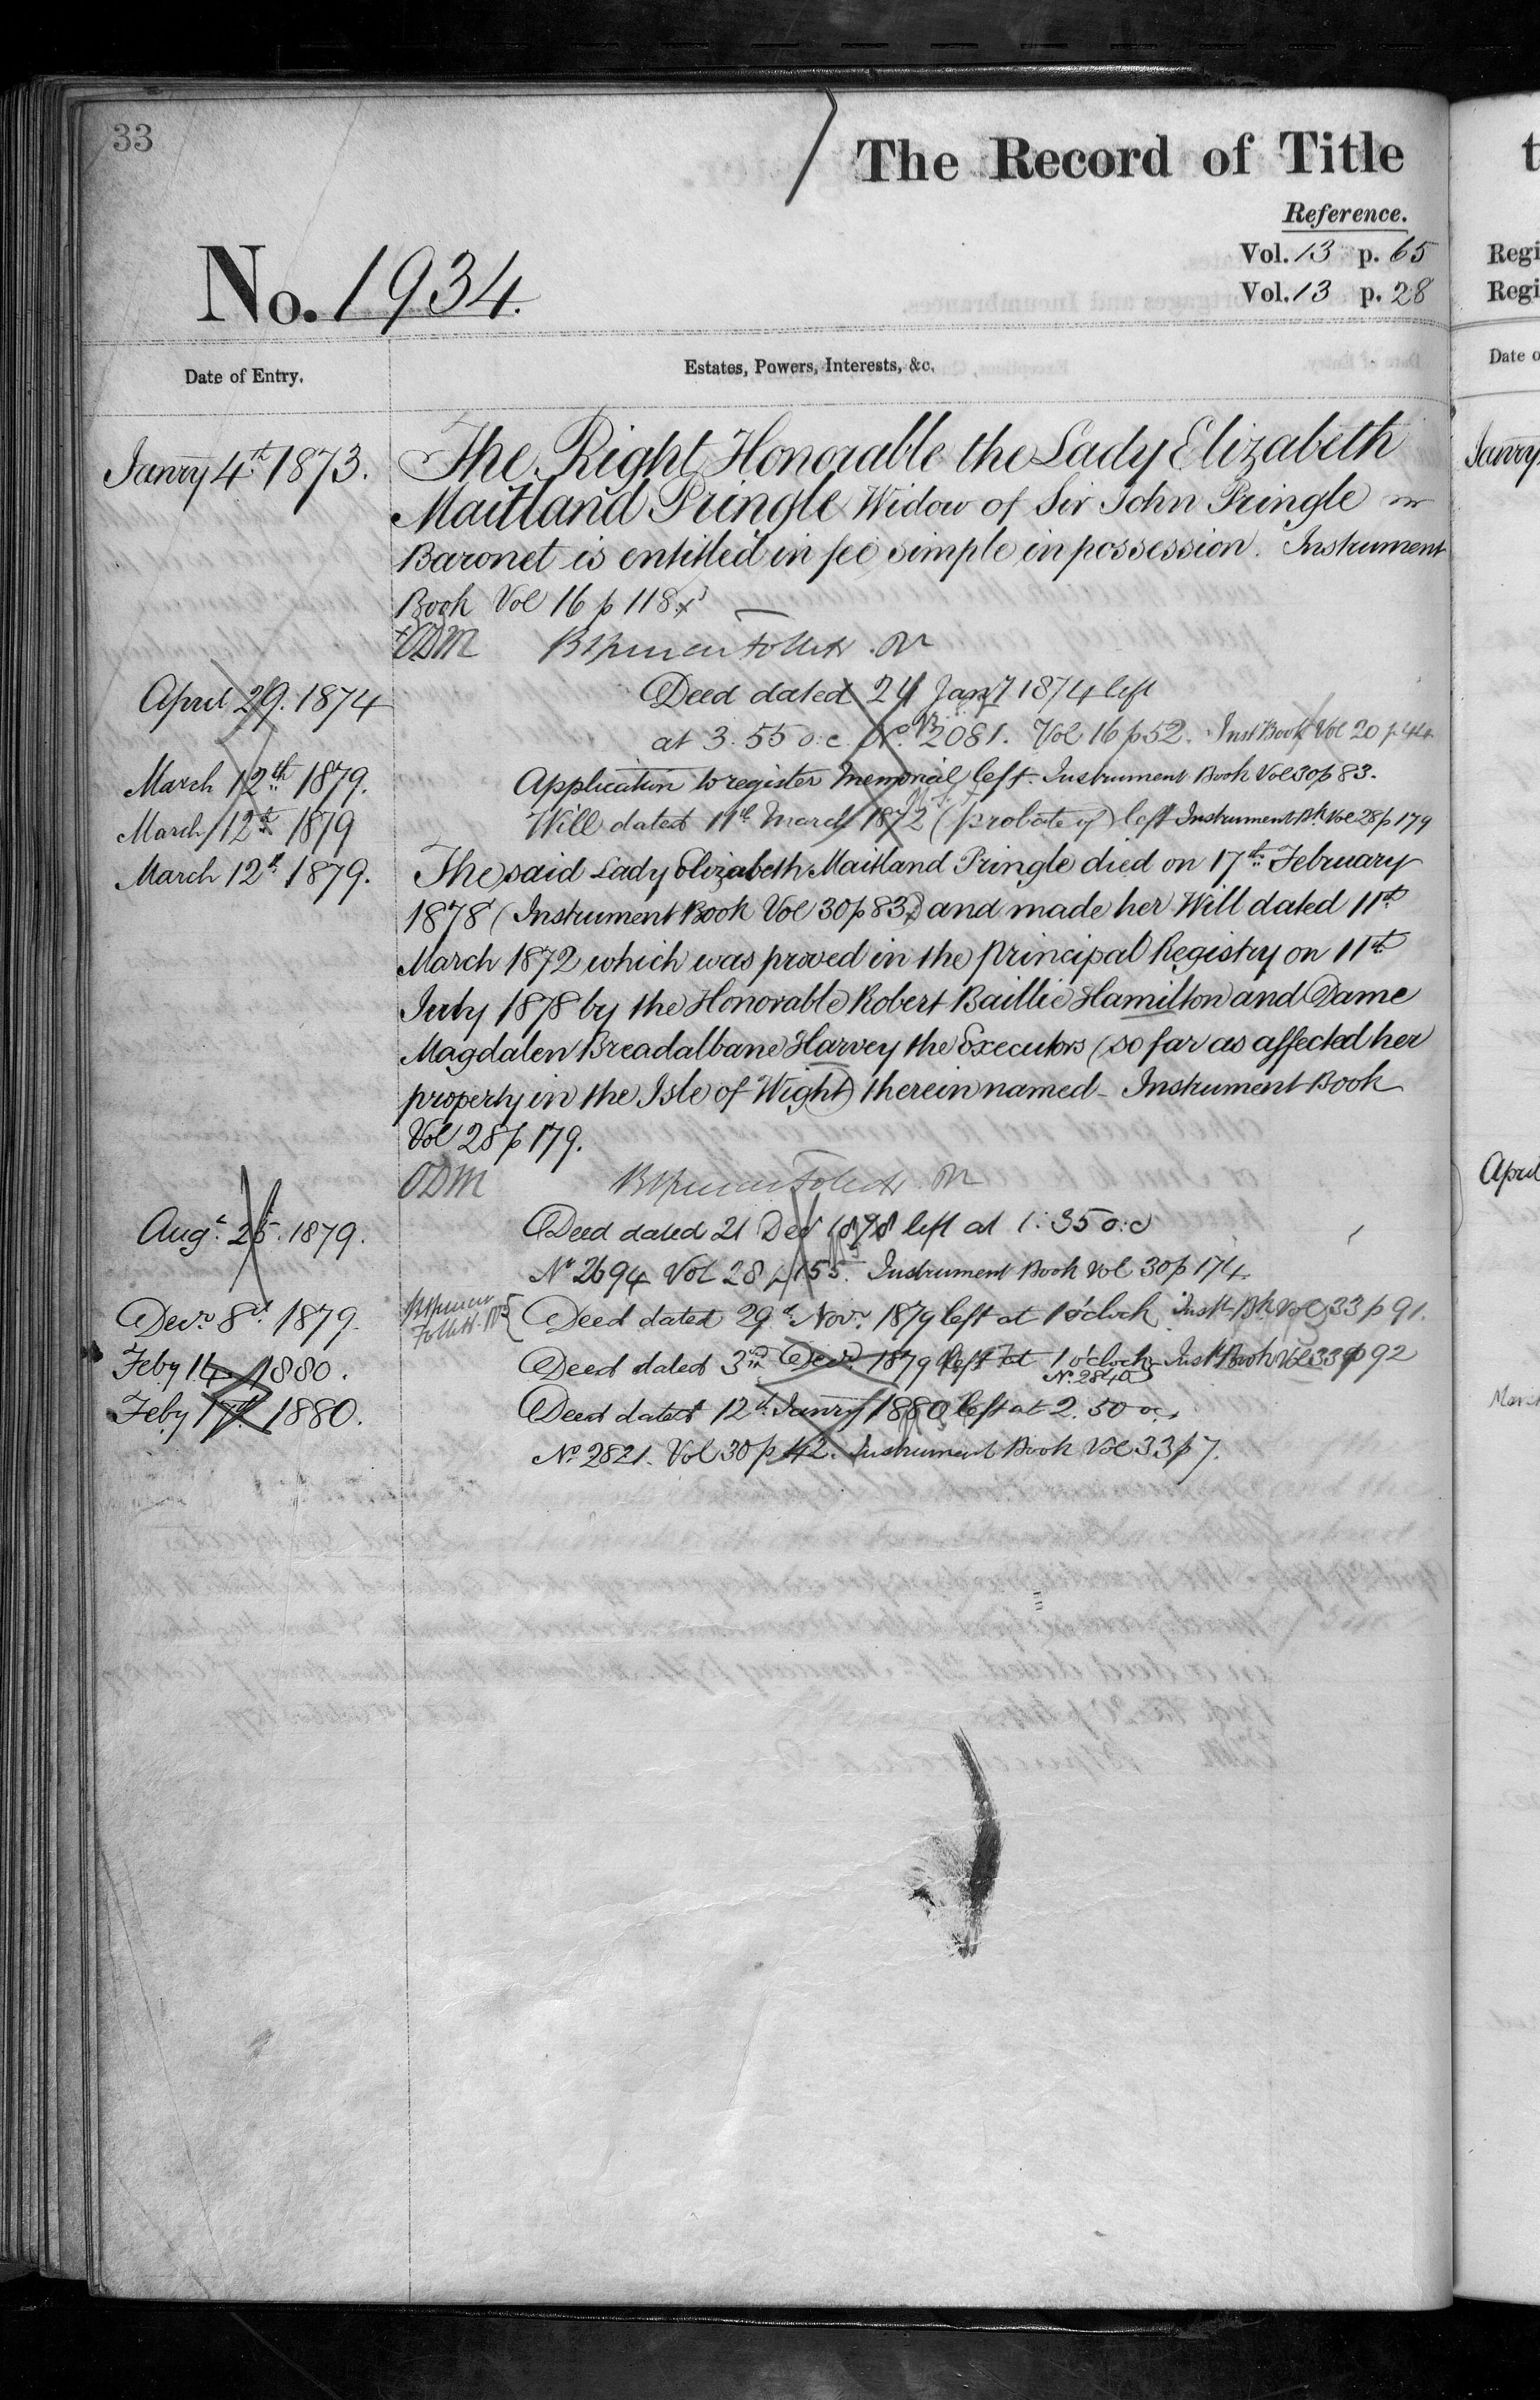 33
The Record of Title
Reference.
Vol. 13 p. 65
No. 1934.
Vol. 13 p. 28
Date of Entry.
Estates, Powers, Interests, &c.
Janry 4th 1873. The Right Honorable the Lady Elizabeth
Maitland Pringle Widow of Sir John Pringle
Baronet is entitled in fee simple in possession. Instrument
Book Vol 16 p 118
ODM
April 29. 1874 Deed dated 24 Jany 1874 left
at 3.55 o:c. No. 2081. Vol 16 p 52. Inst Book Vol 20 p 44
March 12th 1879. Application to register memorial left. Instrument Book Vol 30 p 83.
March 12th 1879 Will dated 11th March 1872 (probate of) left Instrument Bk Vol 28 p 179
March 12th 1879. The said Lady Elizabeth Maitland Pringle died on 17th February
1878 (Instrument Book Vol 30 p 83) and made her Will dated 11th
March 1872 which was proved in the Principal Registry on 11th
July 1878 by the Honorable Robert Baillie Hamilton and Dame
Magdalen Breadalbane Harvey the Executors (so far as affected her
property in the Isle of Wight) therein named - Instrument Book
Vol 28 p 179.
ODM
Augt. 25. 1879. Deed dated 21 Decr 1878 left at 1:35 o:c
No 2694 Vol 28 p 155. Instrument Book Vol 30 p 174
Decr. 8th 1879. Deed dated 29th Novr. 1879 left at 1 o'clock Instt. Bk. Vol 33 p 91.
Feby 14 1880. Deed dated 3rd Decr 1879 left at 1 o'clock Inst Book Vol 33 p 92
No. 2840
Feby 17th 1880. Deed dated 12th Janry 1880 left at 2.50 o.c.
No. 2821. Vol 30 p 42. Instrument Book Vol 33 p 7.
Regi
Regi
Date o
Janry
April